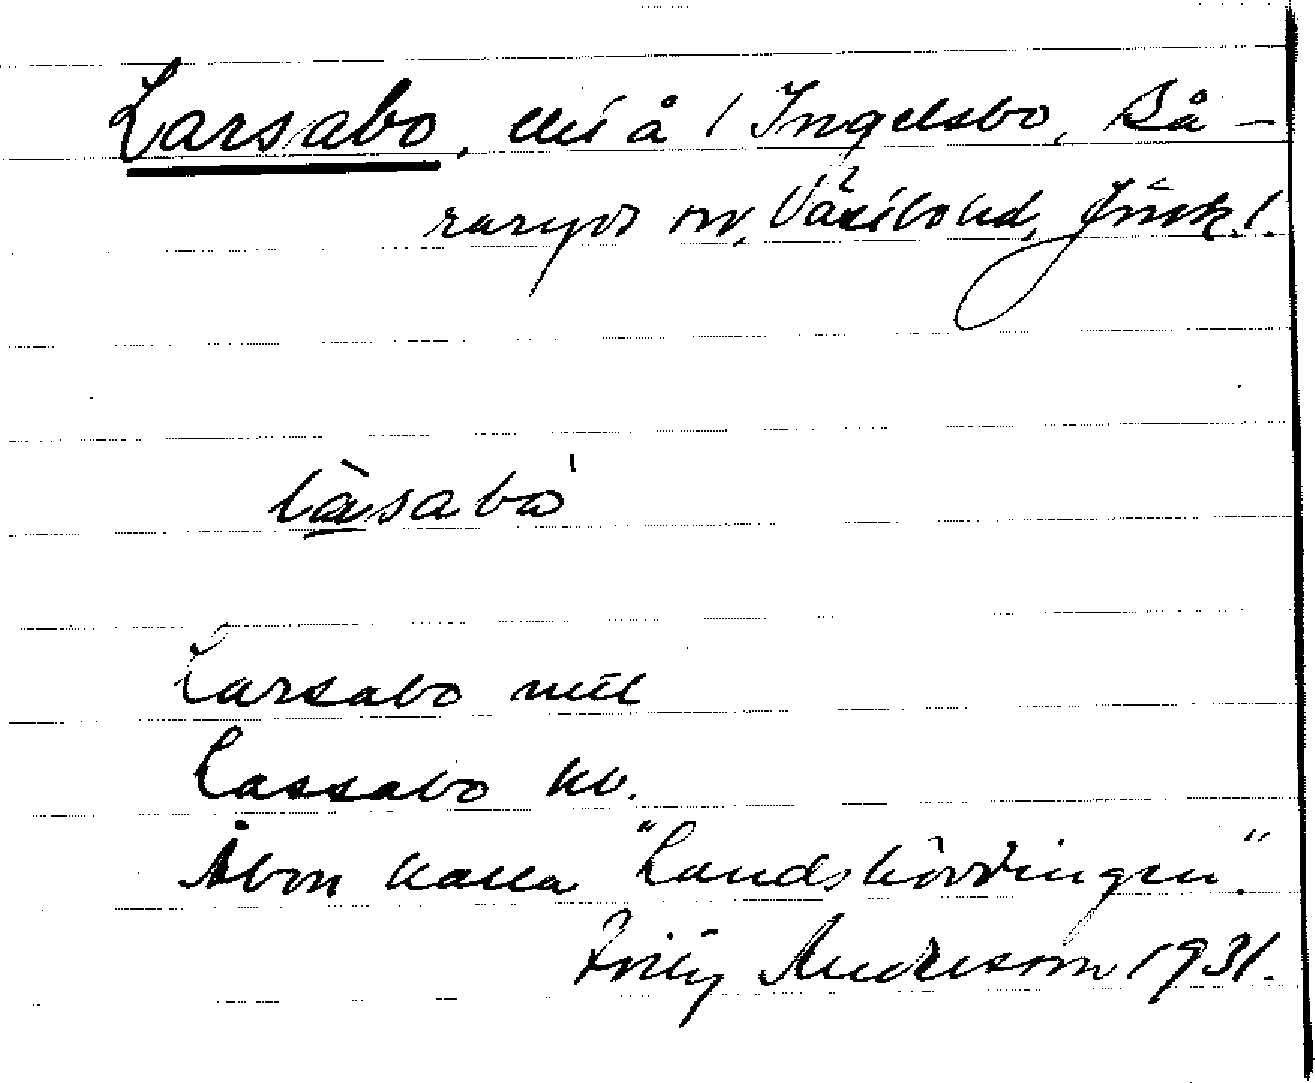 Larsabo, del å 1 Ingelsbo, Bå-
raryds sn, Västbo hd, Jönk. l.
làsabo'
Larsabo mtl
Lassabo kb.
Åbon kalla "Landshövdingen."
Andersson 1931.